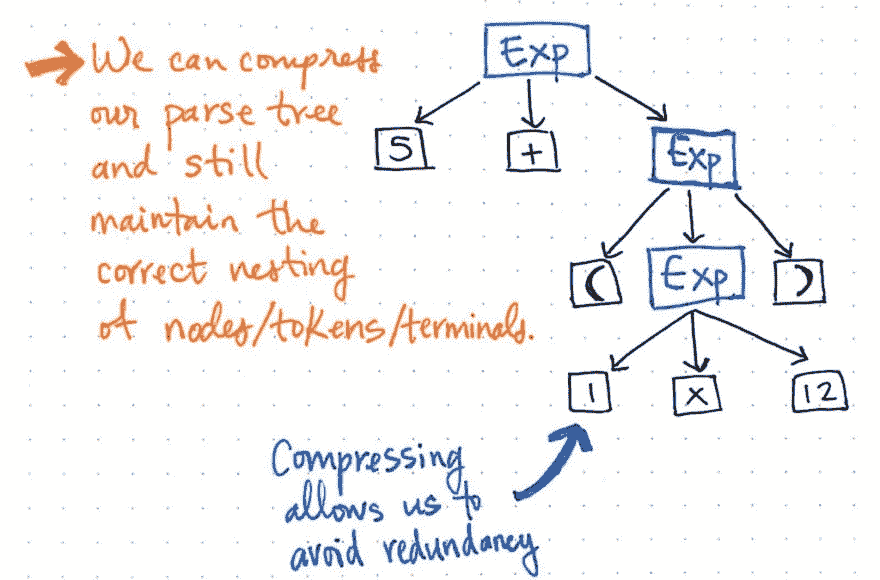 We can compress
our parse tree
and still
maintain the
correct nesting
of nodes/tokens/terminals.
Exp
5
+
Exp
(
Exp
)
1
x
12
Compressing
allows us to
avoid redundancy